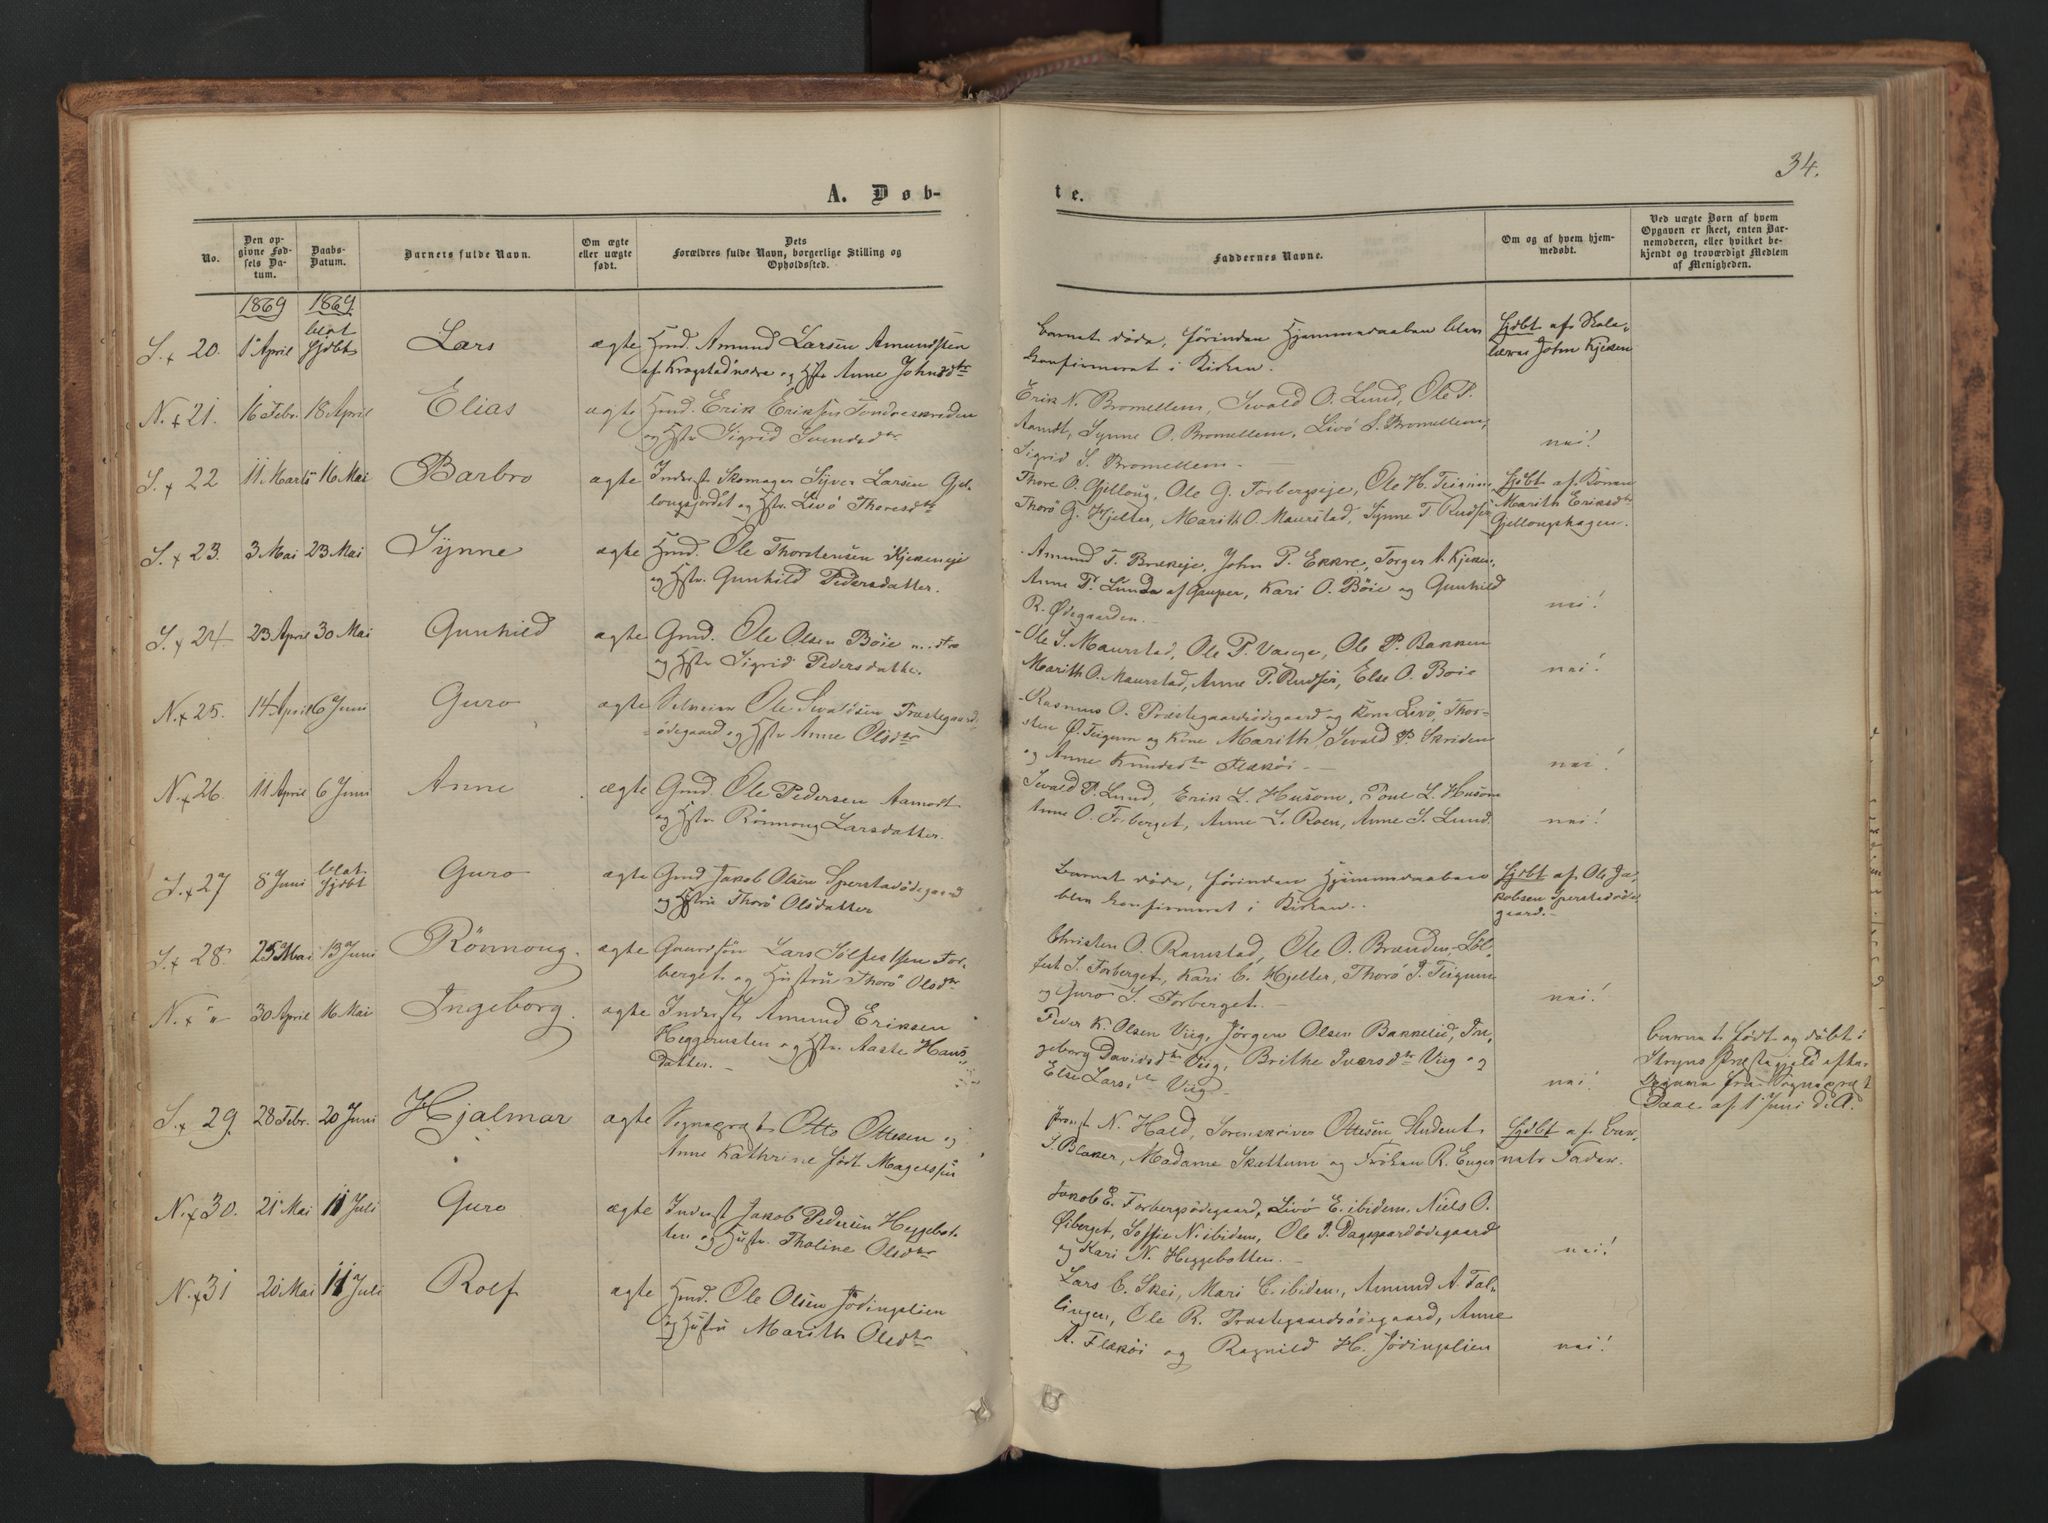 34.
A. Døb-
te.
No.
Den op-
givne Fød-
sels Da-
tum.
Daabs-
Datum.
Barnets fulde Navn.
Om ægte
eller uægte
født.
Dets
Forældres fulde Navn, borgerlige Stilling og
Opholdssted.
Faddernes Navne.
Om og af hvem hjem-
medøbt.
Ved uægte Børn af hvem
Opgaven er skeet, enten Bar-
nemoderen, eller hvilket be-
kjendt og troværdigt Medlem
af Menigheden.
1869 1869.
S. + 20. 1 April blot Hjdbt Lars ægte Gmd. Amund Larsen Amundsten
af Kragstadnedre og Hstr Anne Johnsdtr
Barnet døde, førinden Hjemmedaaben blev
konfirmeret i Kirken.
Hjdbt af Skole-
lærer John Kjeken
N. + 21. 16 Febr. 18 April Elias ægte Gmd. Erik Eriksen Tondreskriden
og Hstr Sigrid Svendsdtr.
Erik N. Bromellem, Sevald O. Lund, Ole P.
Aamdt, Synne O. Bromellem, Livö S. Bromellem,
Sigrid S. Bromellem.
nei!
S. + 22 11 Marts 16 Mai Barbro ægte Inderst Skomager Syver Larsen Gjel-
longsjordet og Hstr. Livö Thoresdtr
Thore O. Gjelloug, Ole G. Forbergseje, Ole H. Teigum,
Thorö G. Hjelter, Marith O. Maurstad, Synne T. Rudsei
Hjdbt af Konen
Marith Eriksdtr
Gjellougshagen.
S. + 23. 3 Mai 23 Mai Synne ægte Gmd. Ole Thorstensen Kjekeneje
og Hstr. Gunhild Pedersdatter.
Amund T. Brækeje, John P. Ekkre, Torger A. Kjeken,
Anne P. Lunde af Gauper, Kari O. Böie og Gunhild
R. Ødegaarden.
nei!
S. + 24. 23 April 30 Mai Gunhild ægte Gmd. Ole Olsen Böie
og Hstr Sigrid Pedersdatter.
Ole S. Maurstad, Ole P. Vange, Ole P. Bakken
Marith O. Maurstad, Anne P. Rudsei, Else O. Böie
nei!
N. + 25. 14 April 6 Juni Guro ægte Selveier Ole Sevaldsen Præstegaards-
ödegaard og Hstr Anne Olsdtr
Rasmus O. Præstegaardsödegaard og Kone Livö, Thor-
sten Ø. Teigum og Kone Marith, Sevald P. Skriden
og Anne Knudsdtr Flækøi.
nei!
N. + 26. 11 April 6 Juni Anne ægte Gmd. Ole Pedersen Aamodt
og Hstr. Rönnoug Larsdatter.
Sevald P. Lund, Erik L. Husom, Poul L. Husom
Anne O. Forberget, Anne L. Roen, Anne S. Lund.
nei!
S. + 27 8 Juni blot Hjdbt Guro ægte Gmd Jakob Olsen Sperstadödegaard
og Hstru Thorö Olsdatter
Barnet døde, førinden Hjemmedaaben
blev konfirmeret i Kirken.
Hjdbt af Ole Ja-
kobsen Sperstadöde-
gaard.
S. + 28. 25 Mai 13 Juni Rönnoug. ægte Gaardsön Lars Sölfestsen For-
berget og Hustru Thorö Olsdtr
Christen O. Ramstad, Ole O. Branden, Söl-
fest S. Forberget, Kari C. Hjelter, Thorö J. Teigum
og Guro S. Forberget.
nei!
N. + " 30 April 16 Mai Ingeborg. ægte Inderst Amund Eriksen
Heggerusten og Hstr. Aaste Hans-
datter.
Peder K. Olsen Viig, Jörgen Olsen Bakkelid, In-
geborg Davidsdtr Viig, Brithe Iversdtr Viig og
Else Larsdtr Viig.
nei!
Barnet født og døbt i
Stryns Præstegjeld efter
Opgave fra Sognepræst
Daae af 1 Juni d. A.
S. + 29. 28 Febr. 20 Juni Hjalmar ægte Sognepræst Otto Ottesen og
Anne Kathrine født Magelssen
Provst N. Hald, Sorenskriver Ottesen, Student
S. Blaker, Madame Skattum og Fröken R. Enger
Hjdbt af Bar-
nets Fader.
N. + 30. 21 Mai 11 Juli Guro ægte Inderst Jakob Pedersen Heggebot-
ten og Hustr. Tholine Olsdtr
Jakob E. Forbergsödegaard, Livö E. ibidem, Niels O.
Øiberget, Soffie N. ibidem, Ole J. Dagsgaardödegaard
og Kari N. Heggebotten.
nei!
N. + 31 20 Mai 11 Juli Rolf ægte Gmd. Ole Olsen Jödingslien
og Hustru Marith Olsdtr
Lars C. Skei, Mari C. ibidem, Amund A. Tol-
lingen, Ole R. Præstegaardsödegaard, Anne
A. Flækøi og Ragnild H. Jödingslien
nei!